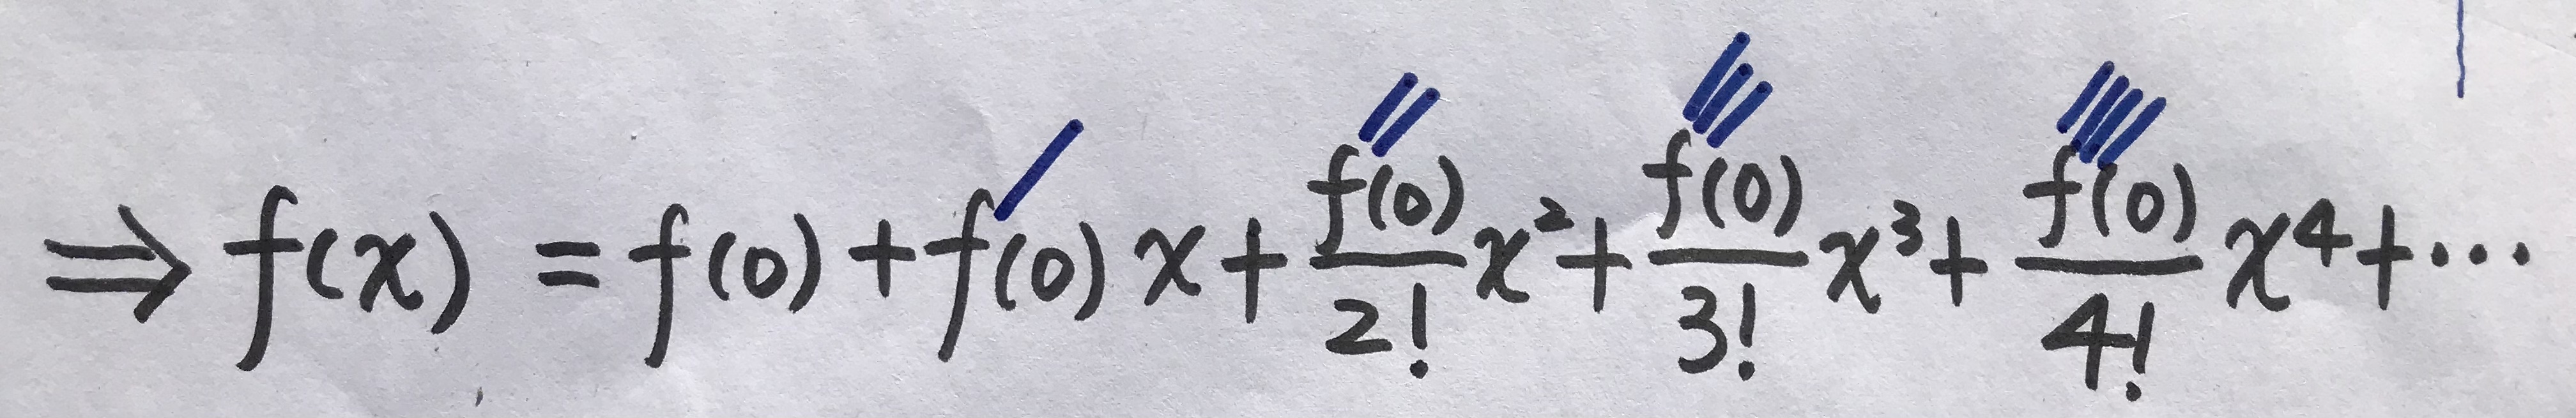 ⇒ f(x) = f(0) + f′(0)x + f″(0)/2! x² + f‴(0)/3! x³ + f⁗(0)/4! x⁴ + ⋯